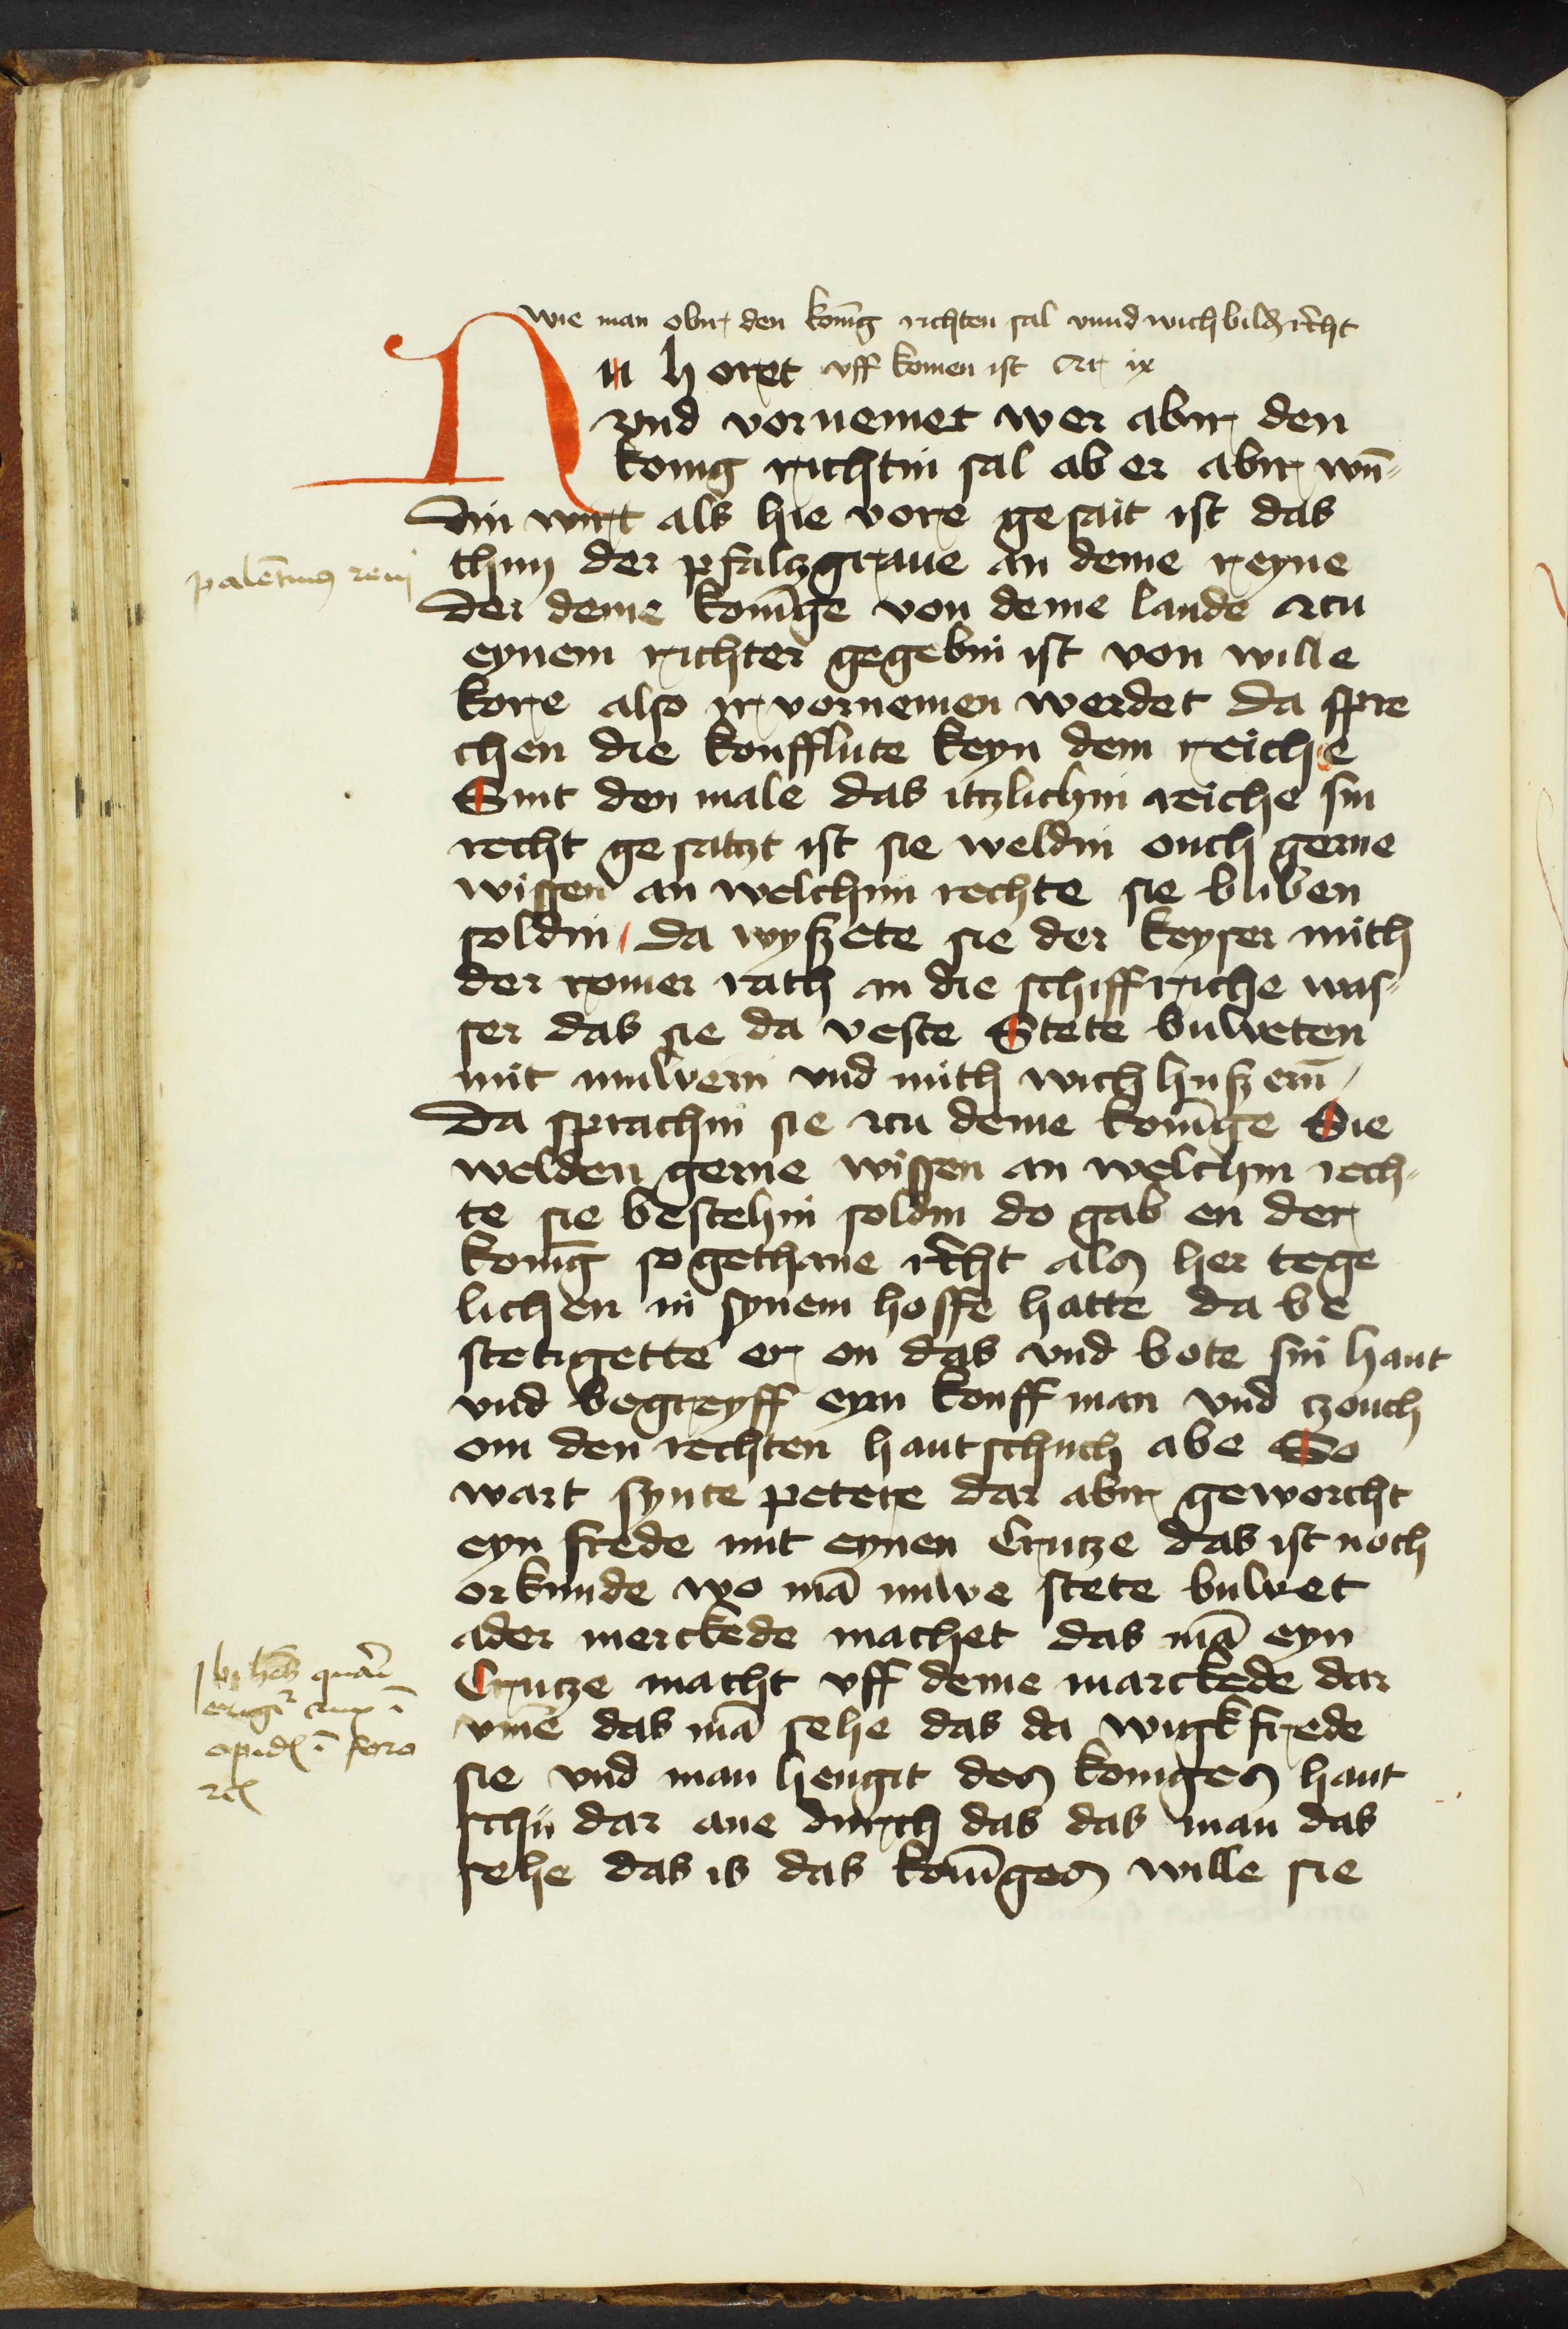 wie man obir den konīg richten sal vnnd wichbild rēcht
vff komen ist Ar ix
Nu horet
vnd vornemet wer abir den
konig richtin sal ab er abir wū-
din wirt als hie vore gesait ist das
thuͦ der pfaltzgraue an deme reyne
der deme konīge von deme lande zcu
eynem richter gegebin ist von wille
kore also ir vornemen werdet Da spre
chen die koufflute keyn dem reiche
Sint den male das itzlichin reiche sin
recht gesatzt ist sie weldin ouch gerne
wissen an welchim rechte sie bliben
soldin / Da wyszete sie der keyser mith
der romer rath an die schiffriche was-
ser das sie da veste Stete buweten
mit muwern vnd mith wichhuszern̄ /
Da sprachin sie zcu deme konīge Sie
welden gerne wissen an welchin rech-
te sie bestehin soldin do gab en der
konīg sogethane rēcht als her tege
lichen in synem hoffe hatte da be
stetigette er on das vnd bote sin hant
vnd begreyff eym kouffman vnd tzouch
om den rechten hantschuch abe So
wart synte petere dar abir geworcht
eyn frede mit eynen Crutze das ist noch
orkunde wo mā nuwe stete buwet
ader merckede machet das mā eyn
Crutze macht vff deme marckede dar
vm̄e das mā sehe das da wigkfrede
sie vnd man hengit des koniges hant
schū dar ane durch das das man das
sehe das is das konīges wille sie
palētinus reni
erigit crux ī
opid ī foro